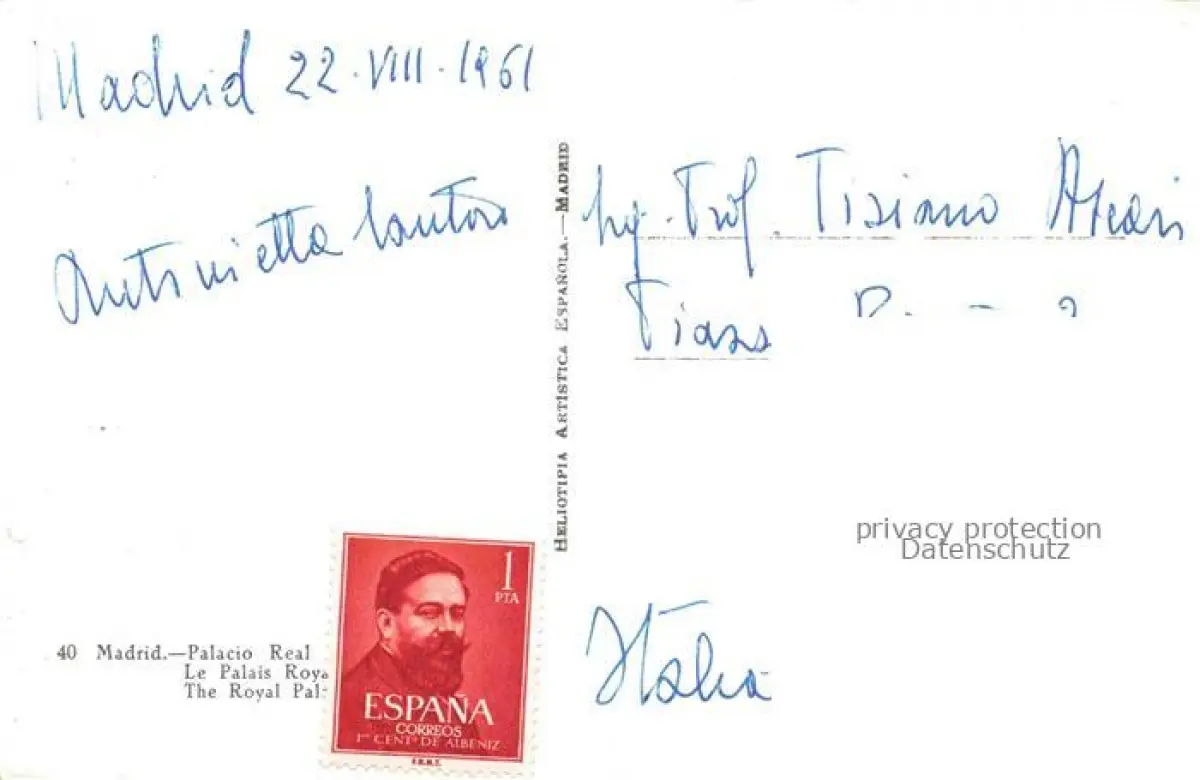 Madrid 22·VIII·1961
Antonietta
HELIOTIPIA ARTISTICA ESPAÑOLA.—MADRID
Prof. Tiziano
Italia
privacy protection
Datenschutz
40 Madrid.—Palacio Real
Le Palais Roya
The Royal Pal
1
PTA
ESPAÑA
CORREOS
1er CENTº DE ALBENIZ
F.N.M.T.